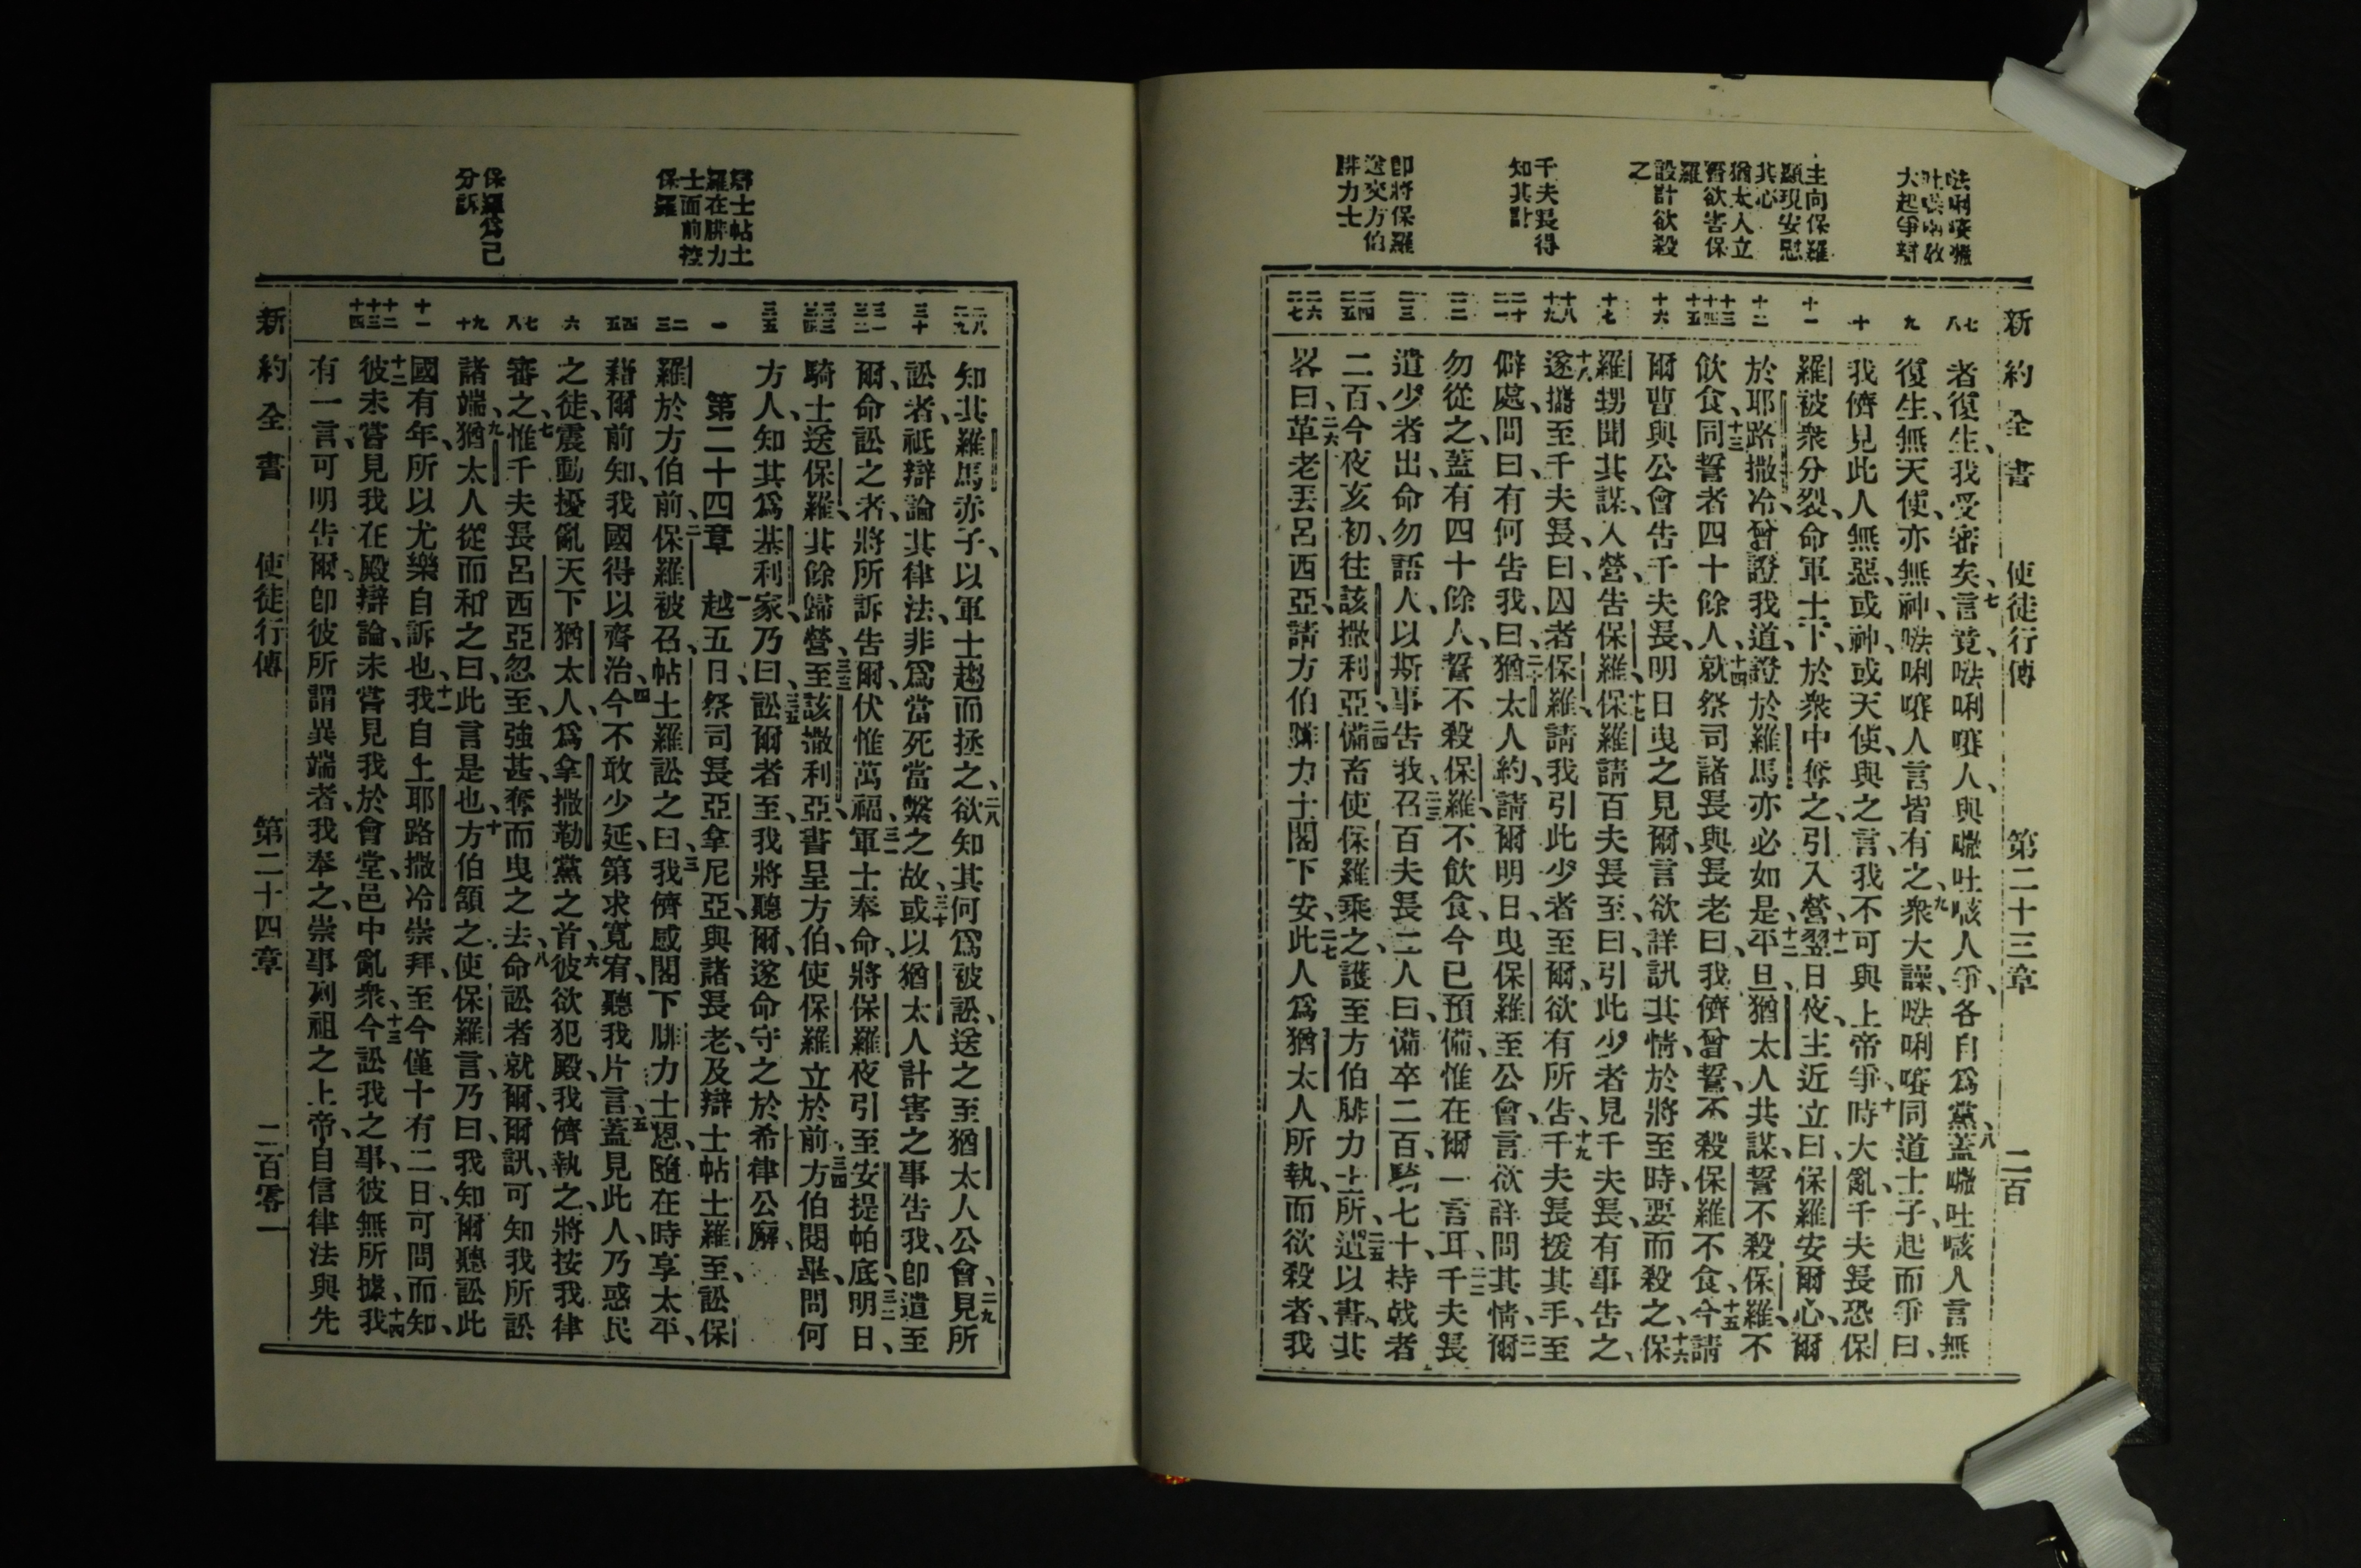 新約全書 使徒行傳 第二十三章 二百
大起爭辯
主向保羅
顯現安慰
其心
猶太人立
誓欲害保
羅
設計欲殺
之
千夫長得
知其計
卽將保羅
送交方伯
腓力士
七 八
九
十
十一
十二
十三 十四 十五
十六
十七
十八 十九
二十 二一
二二
二三
二四 二五
二六 二七
者復生、我受審矣、七言竟㗲唎㘔人、與㘉吐㗒人爭、各自爲黨、八蓋㘉吐㗒人言無
復生、無天使、亦無神、㗲唎㘔人言皆有之、九衆大譟、㗲唎㘔同道士子、起而爭曰、
我儕見此人無惡、或神或天使、與之言、我不可與上帝爭、十時大亂、千夫長恐保
羅被衆分裂、命軍士下、於衆中奪之、引入營、十一翌日夜、主近立曰、保羅安爾心、爾
於耶路撒冷曾證我道、證於羅馬亦必如是、十二平旦、猶太人共謀、誓不殺保羅、不
飲食、十三同誓者四十餘人、十四就祭司諸長與長老曰、我儕曾誓、不殺保羅不食、十五今請
爾曹與公會告千夫長、明日曳之見爾、言欲詳訊其情、於將至時、要而殺之、十六保
羅甥聞其謀、入營、告保羅、十七保羅請百夫長至、曰、引此少者見千夫長、有事告之、
十八遂攜至千夫長、曰、囚者保羅、請我引此少者至爾、欲有所告、十九千夫長援其手、至
僻處、問曰、有何告我、二十曰、猶太人約、請爾明日、曳保羅至公會、言欲詳問其情、二一爾
勿從之、蓋有四十餘人、誓不殺保羅、不飲食、今已預備、惟在爾一言耳、二二千夫長
遣少者出、命勿語人、以斯事告我、二三召百夫長二人曰、備卒二百、騎七十、持戟者
二百、今夜亥初、往該撒利亞、二四備畜使保羅乘之、護至方伯腓力士所、二五遺以書、其
畧曰、二六革老丟呂西亞、請方伯腓力士閣下安、二七此人爲猶太人所執、而欲殺者、我
辯士帖土
羅在腓力
士面前控
保羅
保羅爲己
分訴
二八 二九
三十
三一 三二
三三 三四
三五
一
二 三
四 五
六
七 八
九 十
十一
十二 十三 十四
知其羅馬赤子、以軍士趨而拯之、二八欲知其何爲被訟、送之至猶太人公會、二九見所
訟者、祇辯論其律法、非爲當死當繫之故、三十或以猶太人計害之事告我、卽遣至
爾、命訟之者、將所訴告爾、伏惟萬福、三一軍士奉命、將保羅夜引至安提帕底、三二明日、
騎士送保羅、其餘歸營、三三至該撒利亞、書呈方伯、使保羅立於前、三四方伯閱畢、問何
方人、知其爲基利家、三五乃曰、訟爾者至、我將聽爾、遂命守之於希律公廨、
第二十四章 一越五日、祭司長亞拿尼亞、與諸長老、及辯士帖士羅至、訟保
羅於方伯前、二保羅被召、帖土羅訟之曰、三我儕感閣下腓力士恩、隨在時享太平、
藉爾前知、我國得以齊治、四今不敢少延、第求寬宥、聽我片言、五蓋見此人、乃惑民
之徒、震動擾亂天下猶太人、爲拿撒勒黨之首、六彼欲犯殿、我儕執之、將按我律
審之、七惟千夫長呂西亞忽至、強甚、奪而曳之去、八命訟者就爾、爾訊、可知我所訟
諸端、九猶太人從而和之曰、此言是也、十方伯頷之、使保羅言、乃曰、我知爾聽訟此
國有年、所以尤樂自訴也、十一我自上耶路撒冷崇拜、至今僅十有二日、可問而知、
十二彼未嘗見我在殿辯論、未嘗見我於會堂、邑中亂衆、十三今訟我之事、彼無所據、十四我
有一言、可明告爾、卽彼所謂異端者、我奉之、崇事列祖之上帝、自信律法與先
新約全書 使徒行傳 第二十四章 二百零一